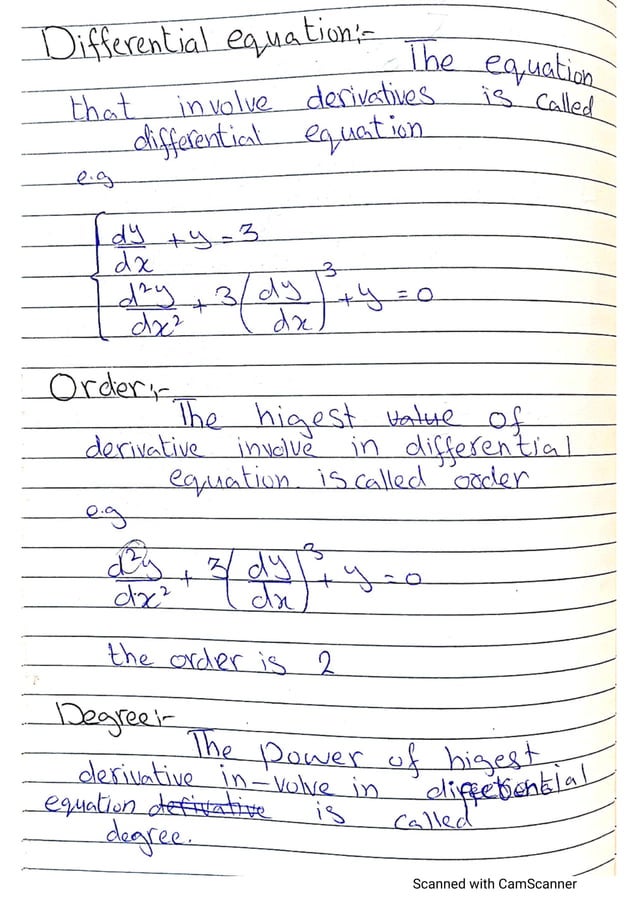 Differential equation:-
The equation
that involve derivatives is called
differential equation
e.g
dy/dx + y = 3
d²y/dx² + 3(dy/dx)³ + y = 0
Order:-
The higest value of
derivative involve in differential
equation. is called order
e.g
d²y/dx² + 3(dy/dx)³ + y = 0
the order is 2
Degree:-
The power of higest
derivative in-volve in differential
equation derivative is called
degree.
Scanned with CamScanner